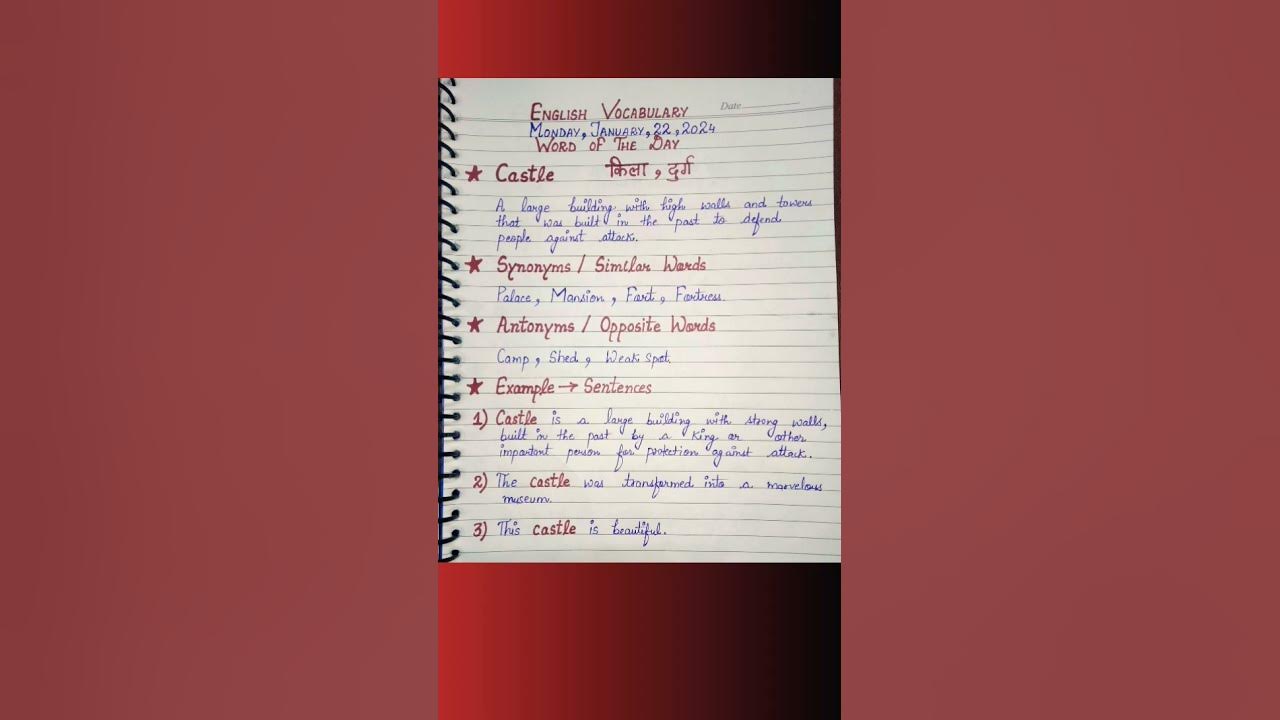 Date
ENGLISH VOCABULARY
MONDAY, JANUARY, 22, 2024
WORD OF THE DAY
★ Castle किला, दुर्ग
A large building with high walls and towers
that was built in the past to defend
people against attack.
★ Synonyms / Similar Words
Palace, Mansion, Fort, Fortress.
★ Antonyms / Opposite Words
Camp, Shed, Weak Spot.
★ Example → Sentences
1) Castle is a large building with strong walls,
built in the past by a King or other
important person for protection against attack.
2) The castle was transformed into a marvelous
museum.
3) This castle is beautiful.